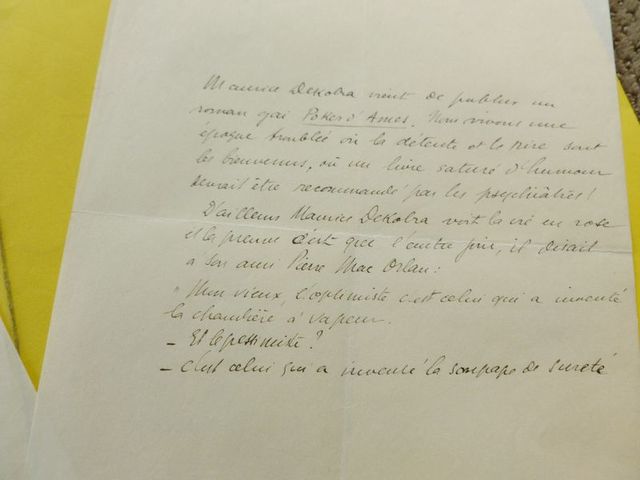 Maurice Dekobra vient de publier un
roman gai Poker d'Ames. Nous vivons une
époque troublée où la détente et le rire sont
les bienvenus, où un livre saturé d'humour
devrait être recommandé par les psychiâtres!
D'ailleurs Maurice Dekobra voit la vie en rose
et la preuve c'est que l'autre jour, il disait
à son ami Pierre Mac Orlan:
" Mon vieux, l'optimiste c'est celui qui a inventé
la chaudière à vapeur.
- Et le pessimiste?
- c'est celui qui a inventé la soupape de sureté